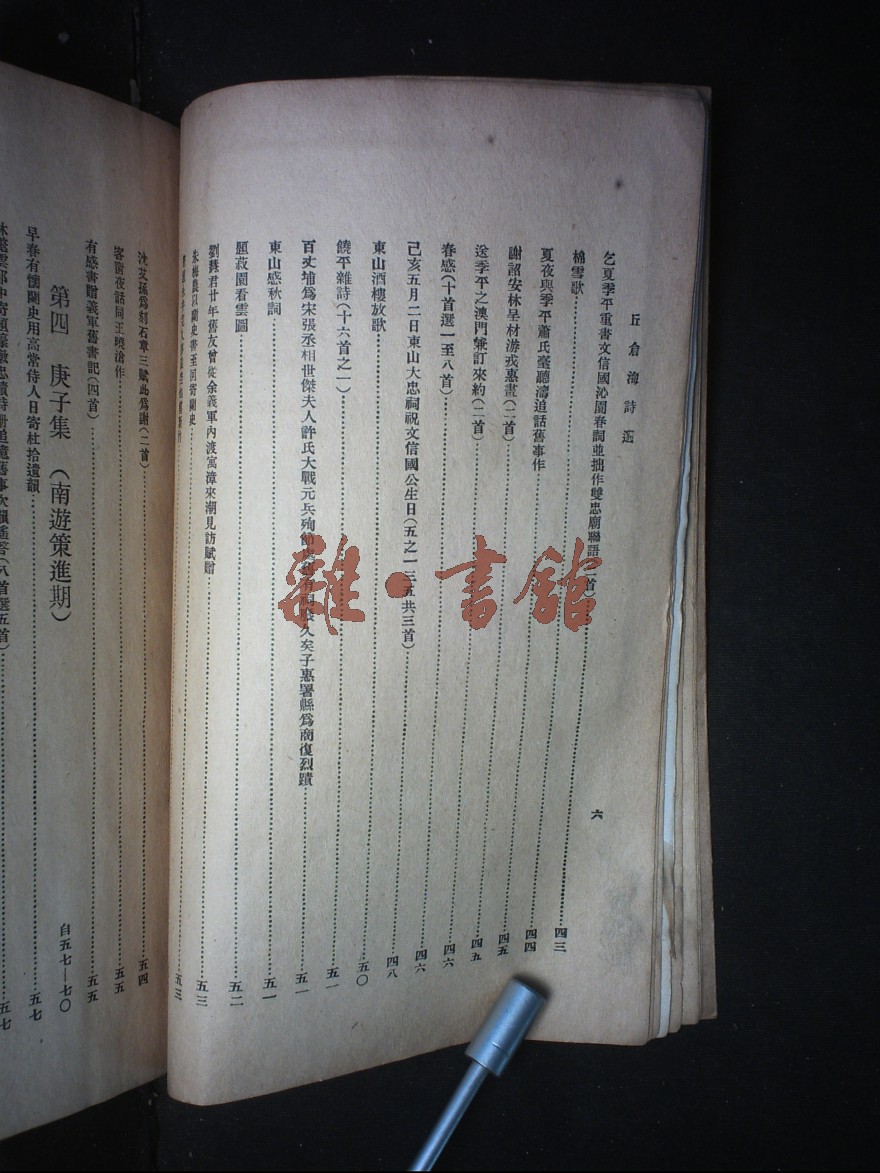 丘倉海詩選
六
乞夏季平重書文信國沁園春詞並拙作雙忠廟聯語 首）
棉雪歌 四三
夏夜與季平蕭氏臺聽濤追話舊事作 四四
謝詔安林呈材游戎惠畫（二首） 四五
送季平之澳門兼訂來約（二首） 四五
春感（十首選一至八首） 四六
己亥五月二日東山大忠祠祝文信國公生日（五之一三五共三首） 四六
東山酒樓放歌 四八
饒平雜詩（十六首之一） 五〇
百丈埔爲宋張丞相世傑夫人許氏大戰元兵殉節 久矣子惠署縣爲商復烈蹟 五一
東山感秋詞 五一
題菽園看雲圖 五一
劉 君廿年舊友曾從余義軍內渡寓漳來潮見訪賦贈 五二
朱梅農以蘭史書至因寄蘭史 五三
五三
沈艾孫爲刻石章三賦此爲謝（二首） 五四
客窗夜話同王曉滄作 五五
有感書贈義軍舊書記（四首） 五五
第四 庚子集（南遊策進期） 自五七—七〇
早春有懷蘭史用高常侍人日寄杜拾遺韻 五七
忠蹟詩冊追憶舊事次韻遙答（八首選五首） 五七
雜·書館